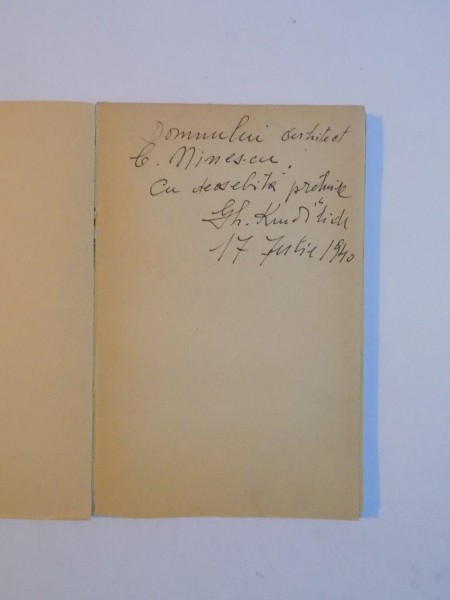 Domnului arhitect
C. Ninescu.
Cu deosebită prețuire
Gh.
17 Iulie 1940